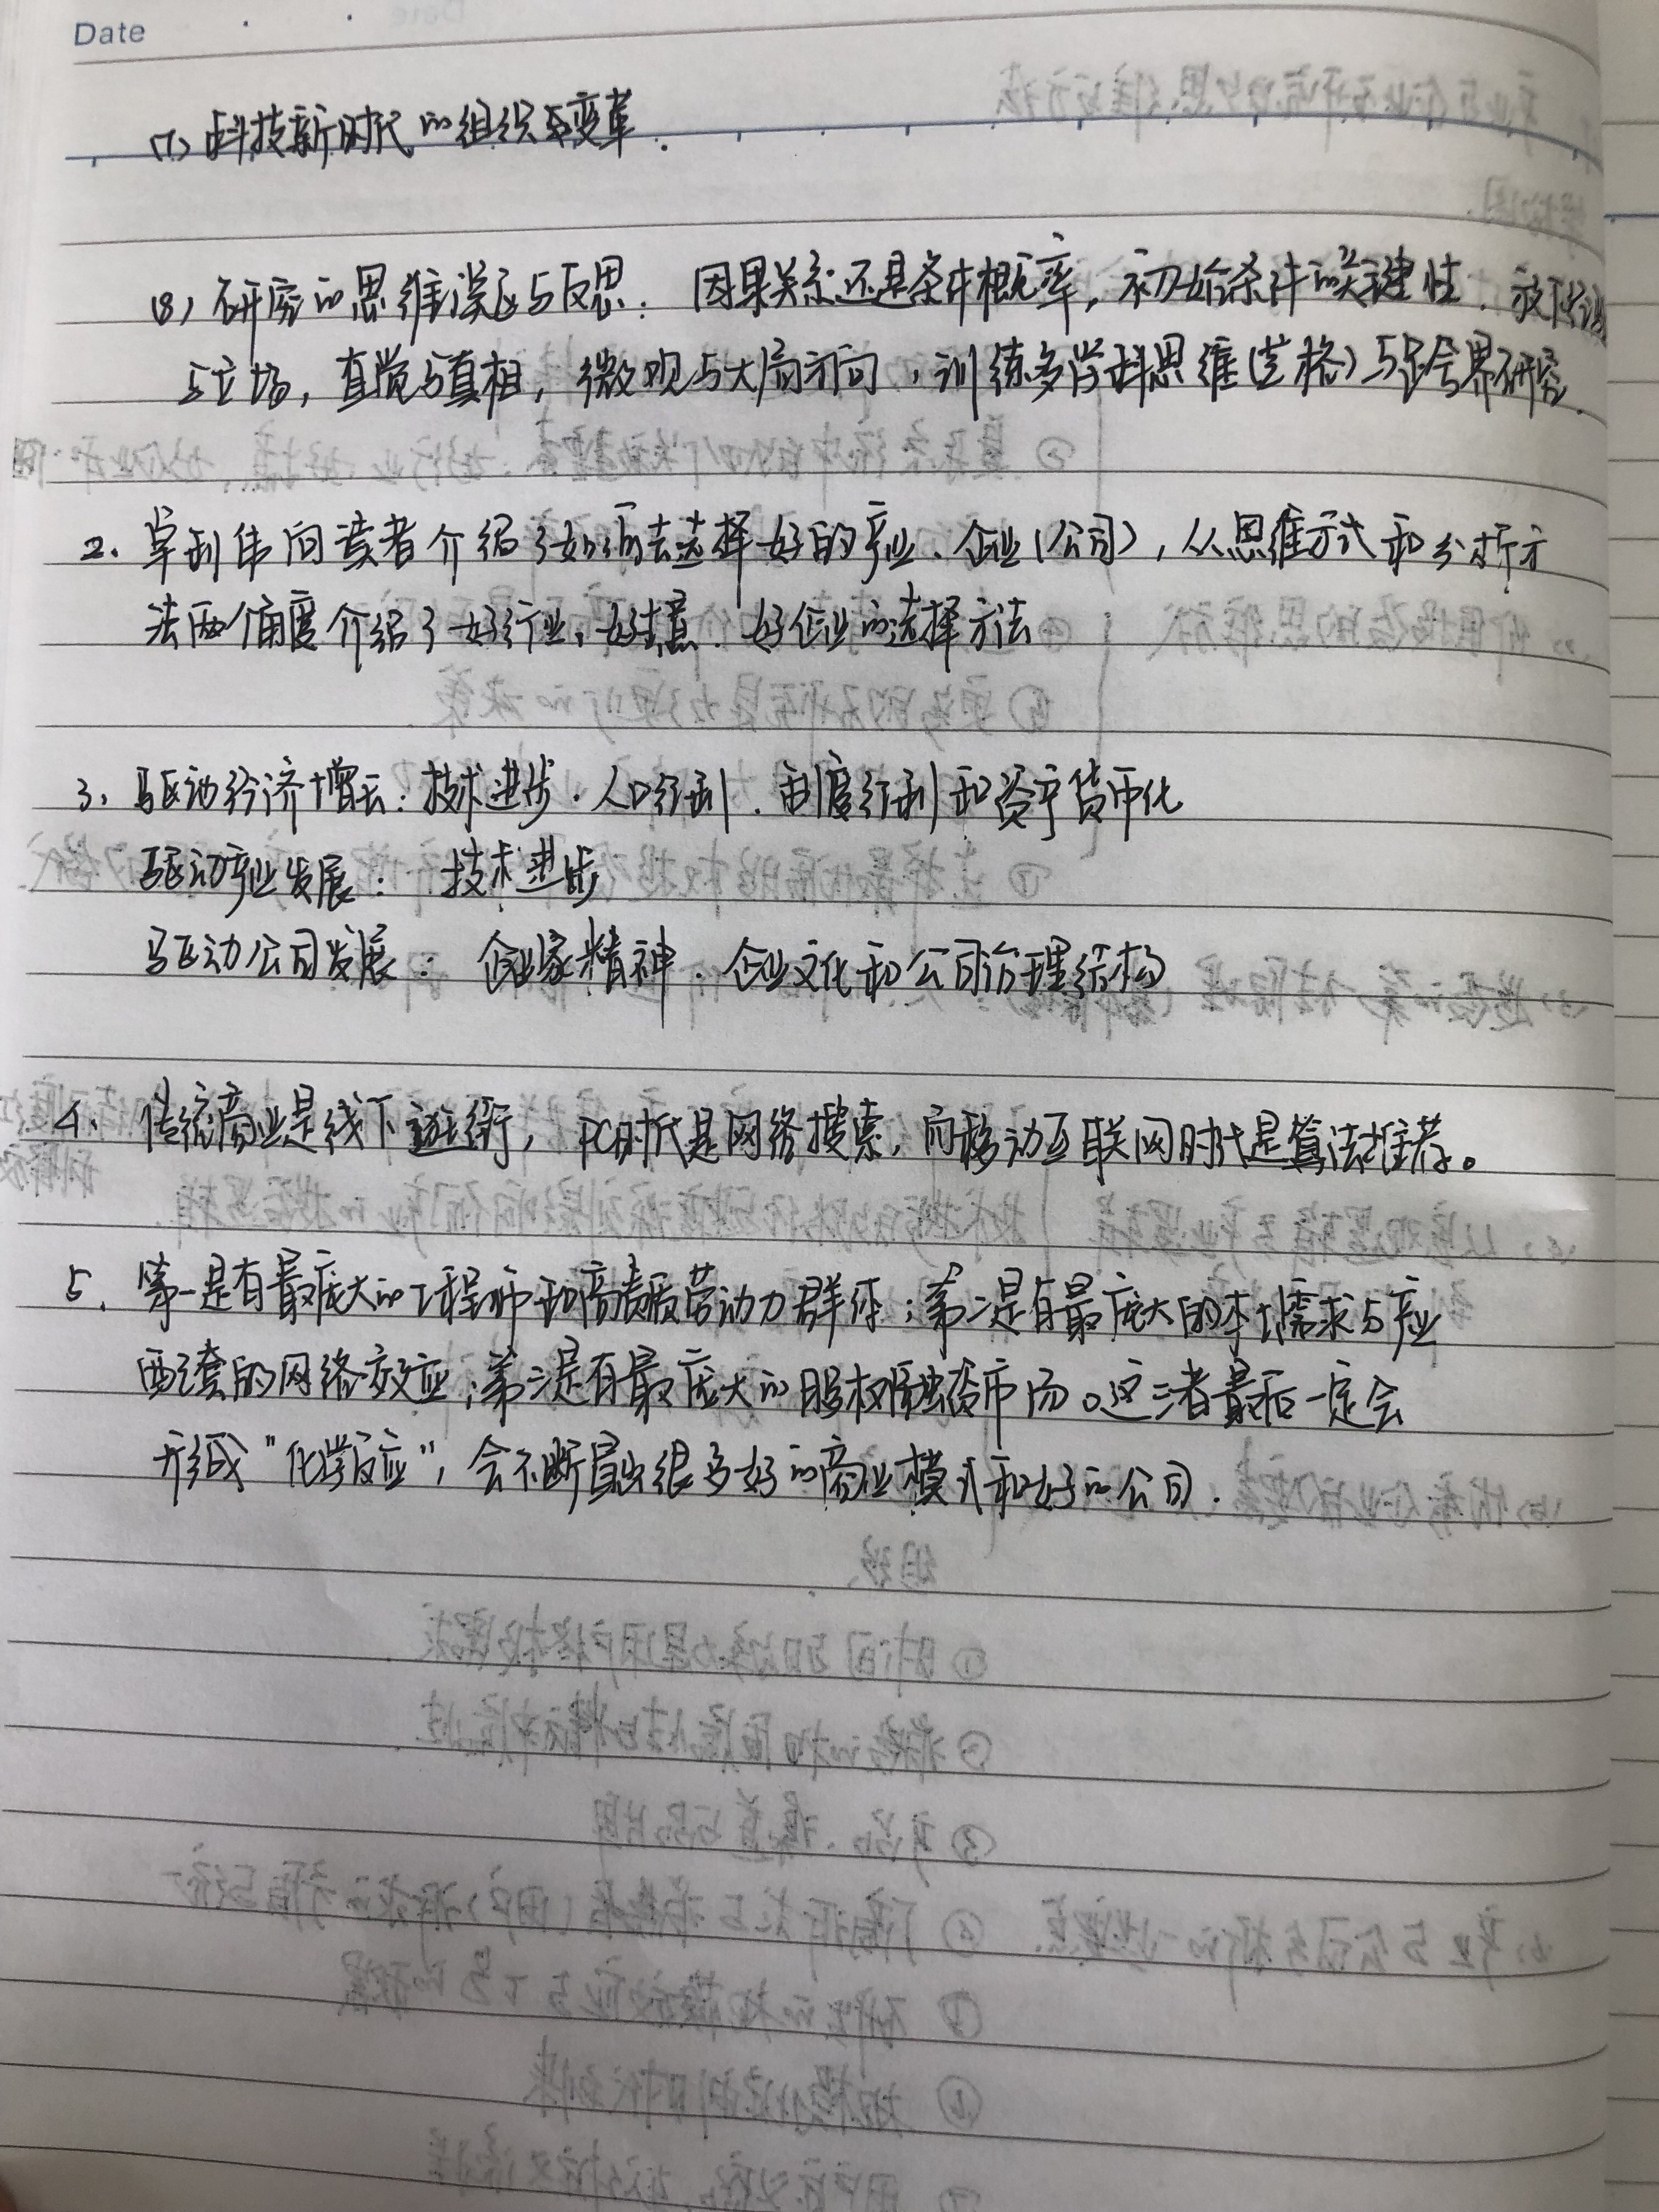 Date
(7) 科技新时代的组织与变革.
(8) 研究的思维误区与反思: 因果关系还是条件概率, 初始条件的关键性. 放下
与立场, 直觉与真相, 微观与大局方向, 训练多学科思维(芒格)与跨界研究.
2. 卓利伟向读者介绍了如何去选择好的产业、企业(公司), 从思维方式和分析方
法两个角度介绍了好行业、好生意、好企业的选择方法
3、驱动经济增长: 技术进步、人口红利、制度红利和资产货币化
驱动产业发展: 技术进步
驱动公司发展: 企业家精神、企业文化和公司治理结构
4、传统商业是线下逛街, PC时代是网络搜索, 而移动互联网时代是算法推荐。
5、第一是有最庞大的工程师和高素质劳动力群体; 第二是有最庞大的本土需求与产业
配套的网络效应; 第三是有最庞大的股权融资市场。这三者最后一定会
形成"化学反应", 会不断冒出很多好的商业模式和好的公司.